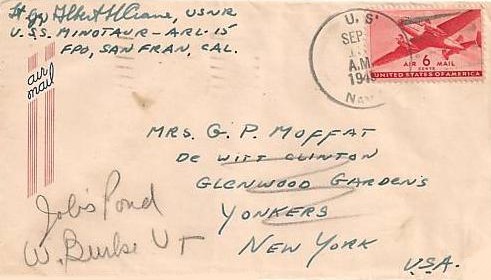 Lt jg Albert H Crane, USNR
U.S.S. MINOTAUR - ARL-15
FPO, SAN FRAN, CAL.
air
mail
U. S.
SEP
A.M.
NAVY
AIR 6 MAIL
CENTS
UNITED STATES OF AMERICA
MRS. G. P. MOFFAT
DE WITT CLINTON
GLENWOOD GARDENS
YONKERS
NEW YORK
U.S.A.
Job's Pond
W. Burke Vt